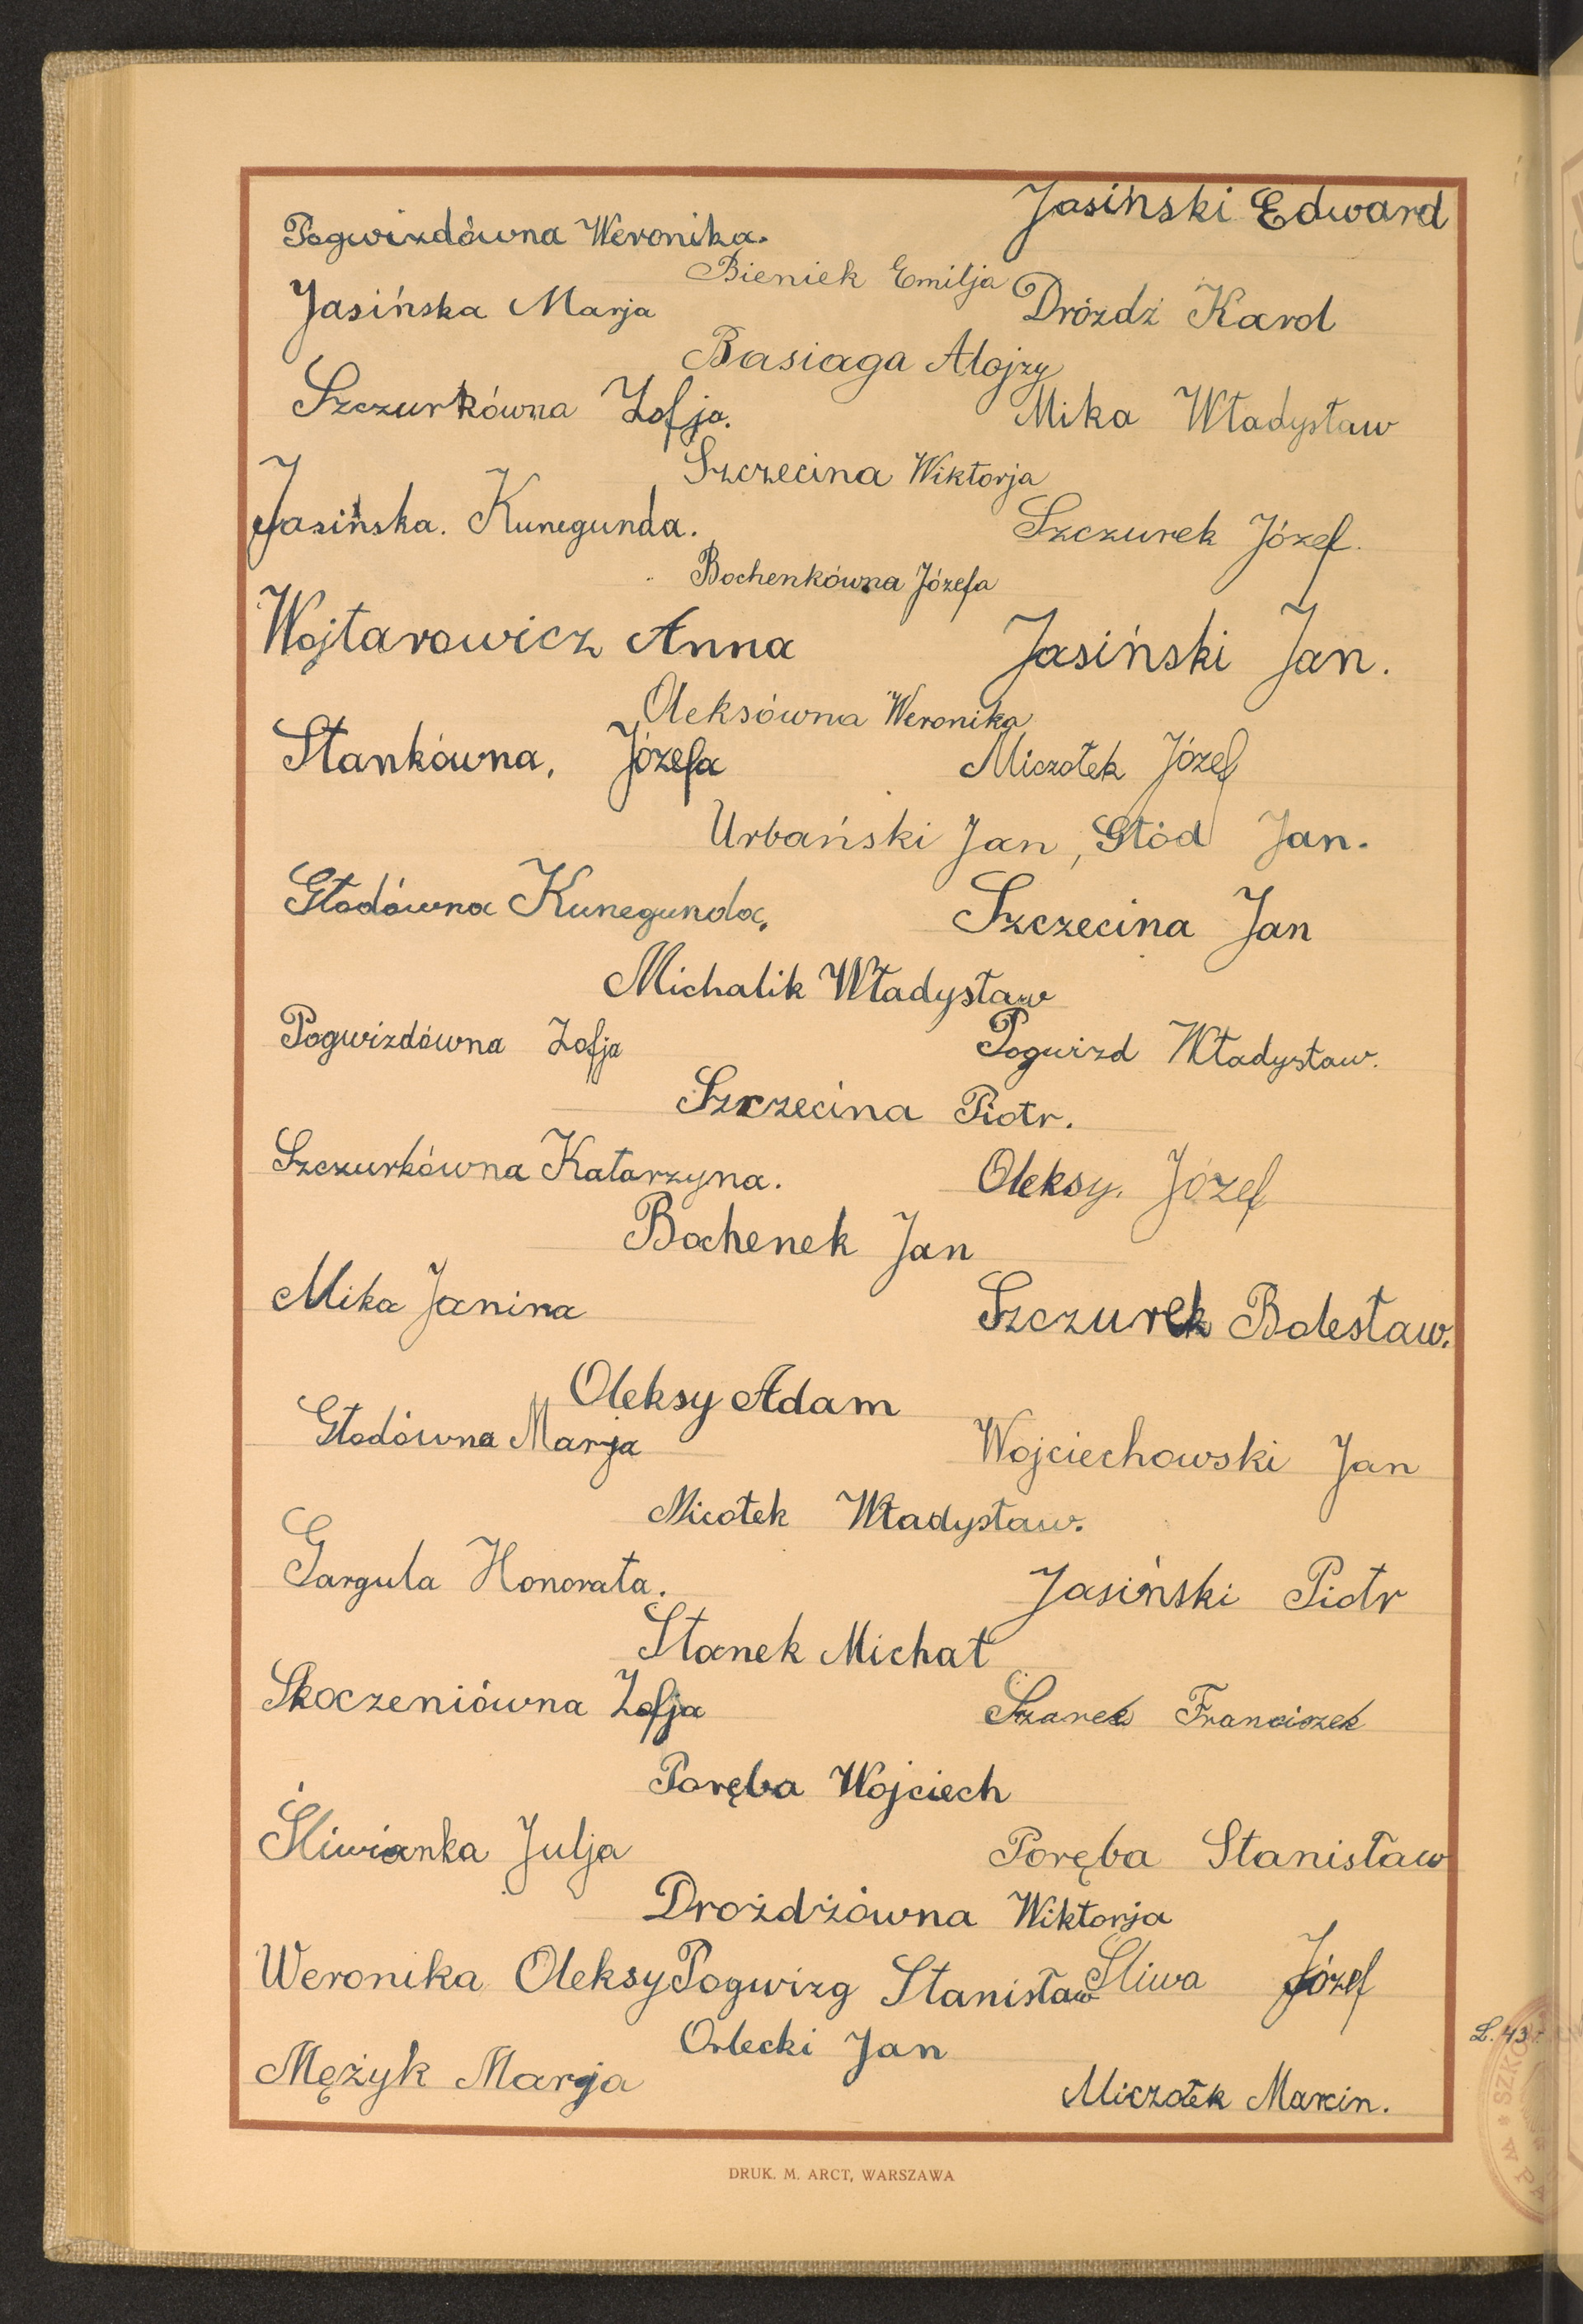 Jasiński Edward
Pogwizdówna Weronika.
Bieniek Emilja
Jasińska Marja
Dróżdż Karol
Basiaga Alojzy
Szczurkówna Zofja.
Mika Władysław
Szczecina Wiktorja
Jasińska. Kunegunda.
Szczurek Józef.
Bochenkówna Józefa
Wojtarowicz Anna
Jasiński Jan.
Oleksówna Weronika
Stankówna, Józefa
Miczołek Józef
Urbański Jan, Głód Jan.
Głodówna Kunegunda,
Szczecina Jan
Michalik Władysław
Pogwizdówna Zofja
Pogwizd Władysław.
Szczecina Piotr.
Szczurkówna Katarzyna.
Oleksy. Józef
Bochenek Jan
Mika Janina
Szczurek Bolesław.
Oleksy Adam
Głodówna Marja
Wojciechowski Jan
Micołek Władysław.
Gargula Honorata.
Jasiński Piotr
Stanek Michał
Skoczeniówna Zofja
Szarek Franciszek
Poręba Wojciech
Śliwianka Julja
Poręba Stanisław
Drożdżówna Wiktorja
Weronika Oleksy Pogwizg Stanisław Śliwa Józef
Orlecki Jan
Mężyk Marja
Miczołek Marcin.
DRUK. M. ARCT, WARSZAWA